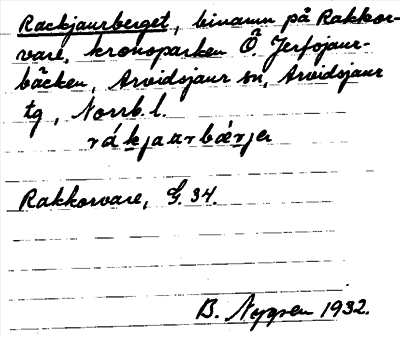 Rackjaurberget, binamn på Rakkor-
vare, kronoparken Ö. Jerfojaur-
bäcken, Arvidsjaur sn, Arvidsjaur
tg, Norrb. l.
rákjaurbærjer
Rakkorvare, G. 34.
B. Nygren 1932.